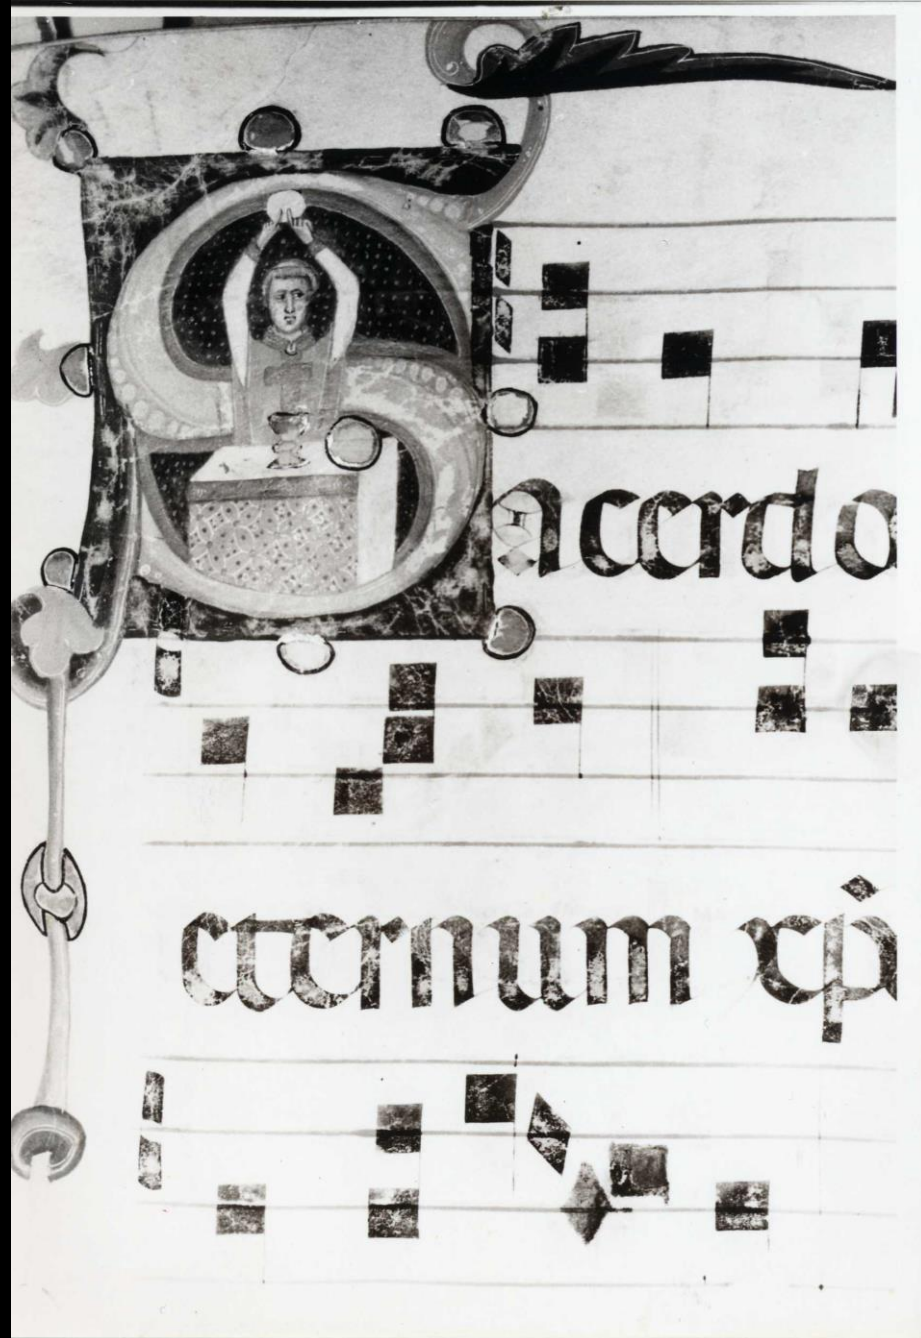 Sacerdo
eternum xp̄